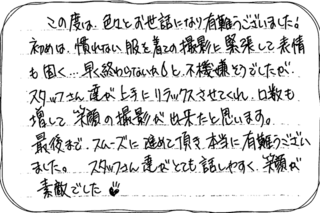 この度は、色々とお世話になり有難うございました。
初めは、慣れない服を着ての撮影に緊張して表情
も固く…早く終わらないかなと、不機嫌そうでしたが
スタッフさん達が上手にリラックスさせてくれ、口数も
増して笑顔の撮影が出来たと思います。
最後まで、スムーズに進めて頂き本当に有難うござい
ました。 スタッフさん達がとても話しやすく、笑顔が
素敵でした